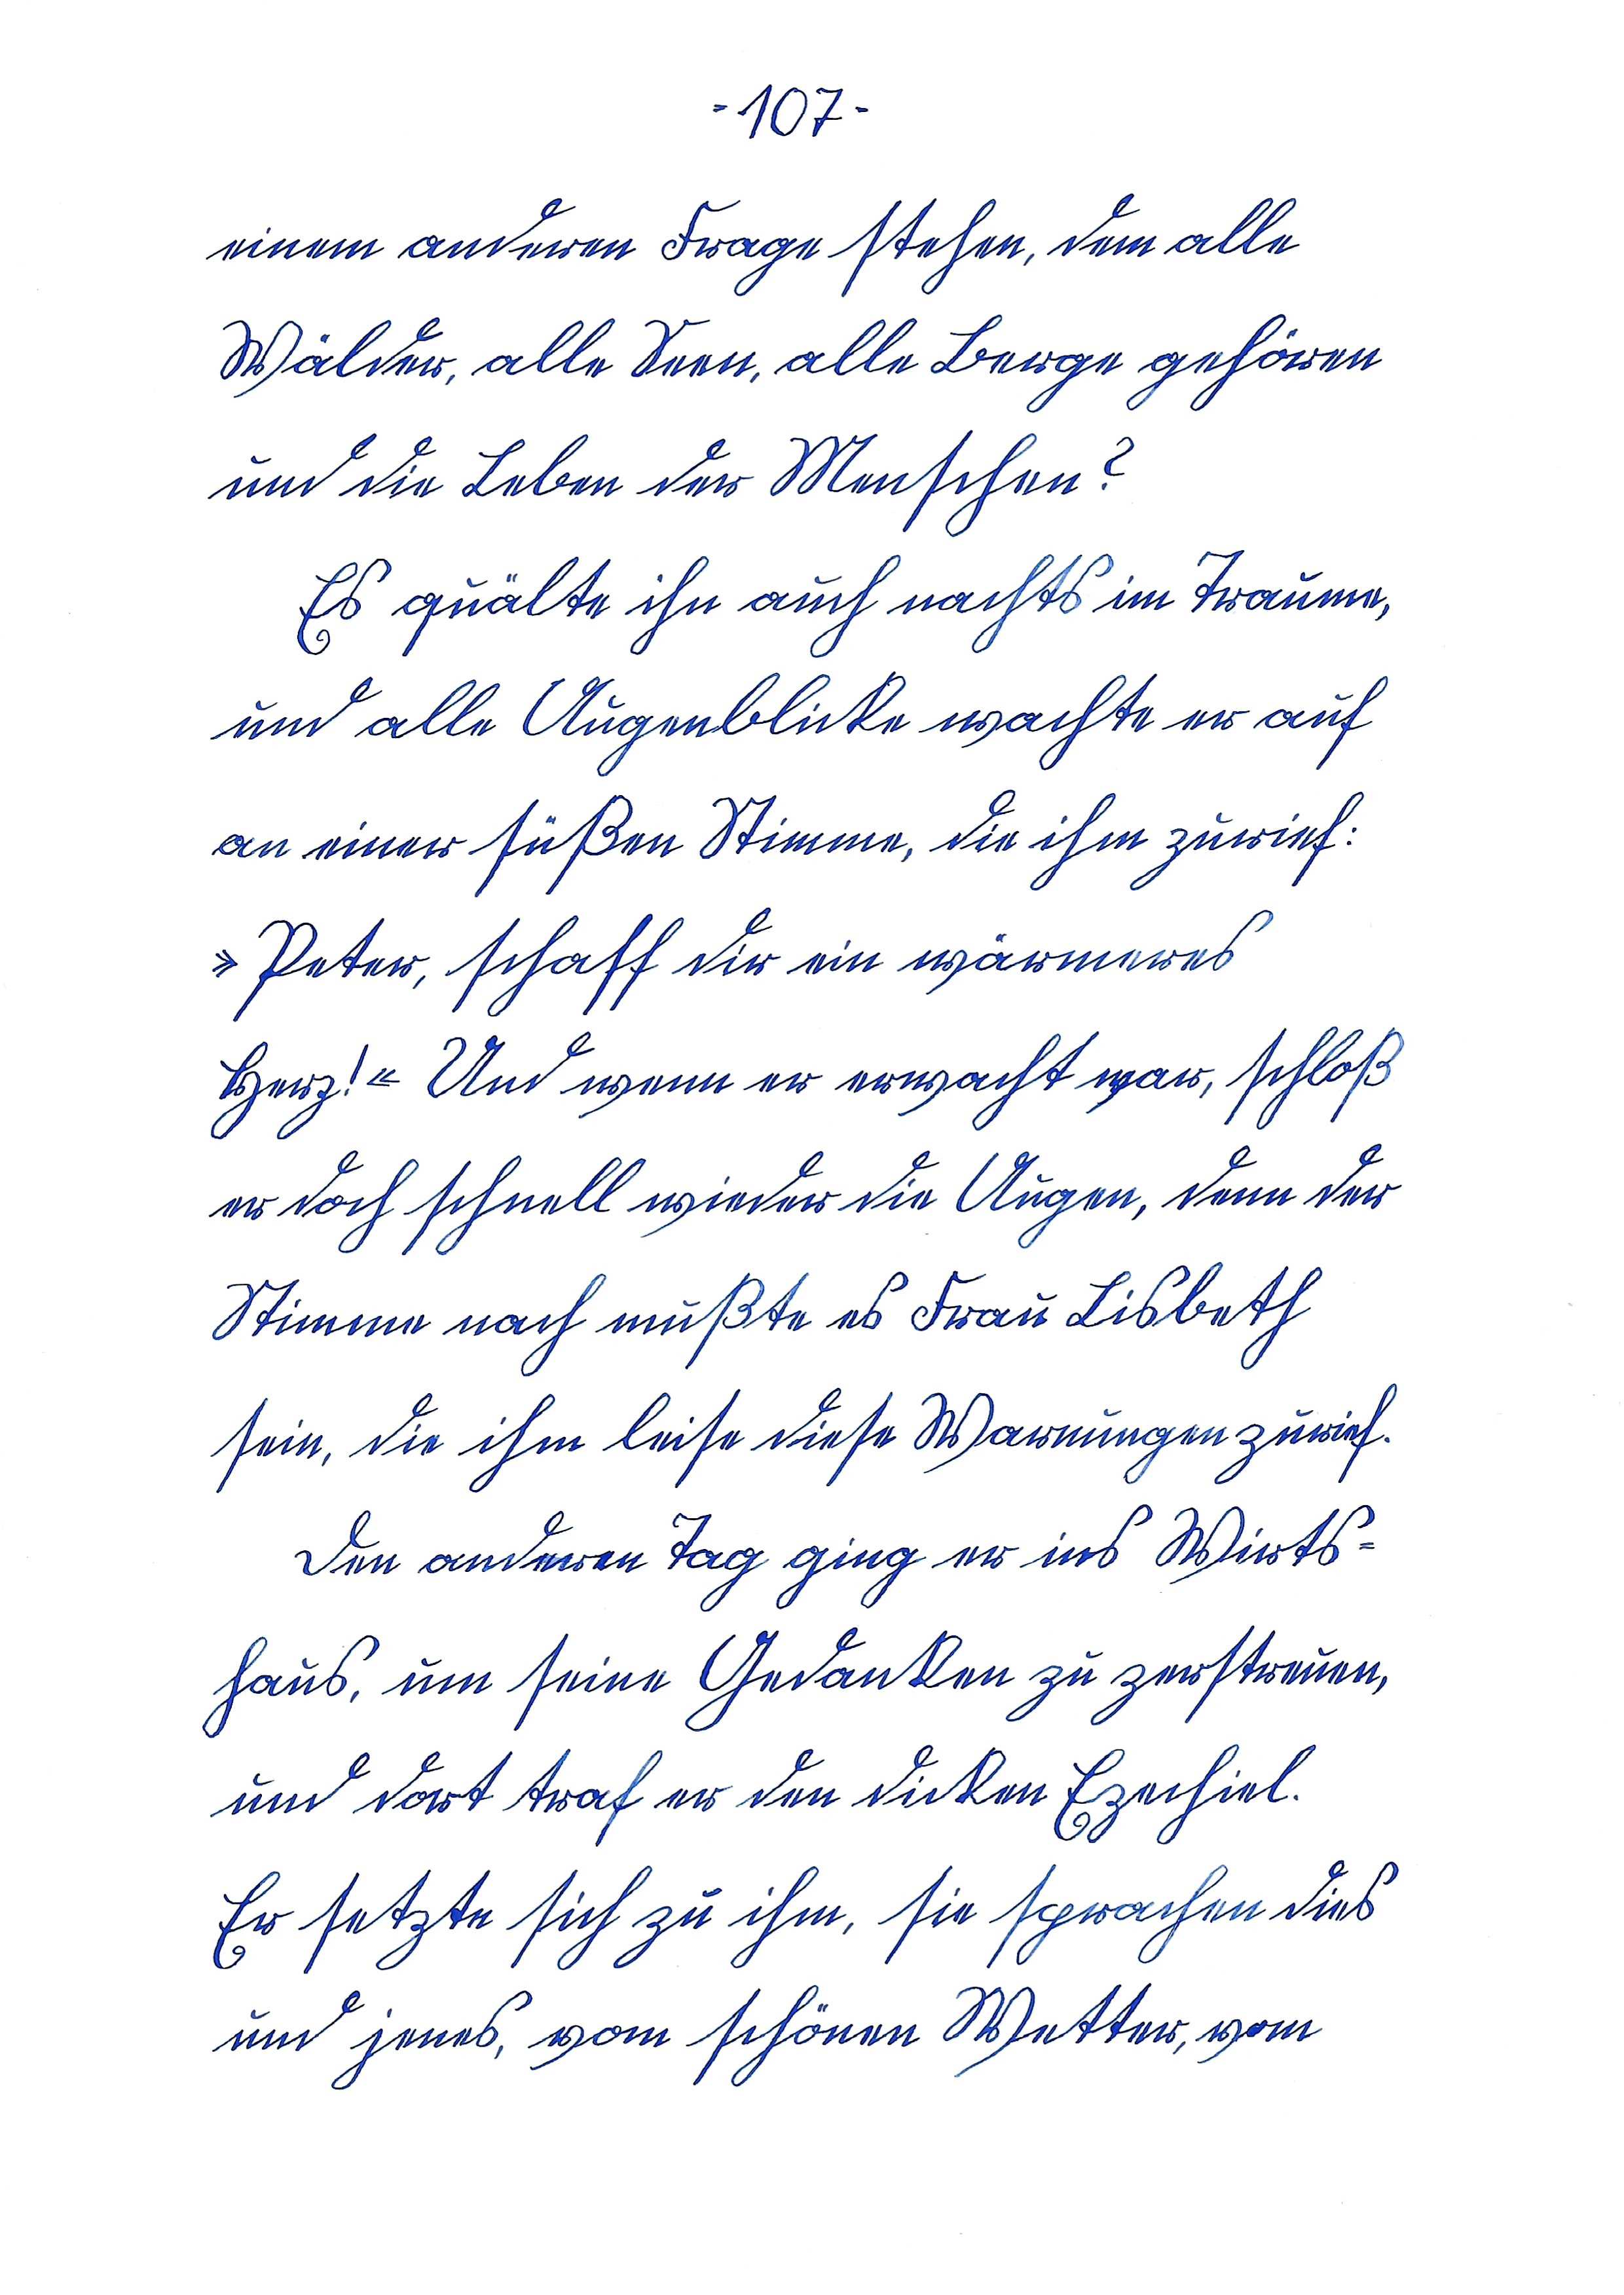 -107-
einem anderen Frage stehen, dem alle
Wälder, alle Seen, alle Berge gehören
und die Leben der Menschen?
Es quälte ihn auch nachts im Traume,
und alle Augenblicke wachte er auf
an einer süßen Stimme, die ihm zurief:
»Peter, schaff dir ein wärmeres
Herz!« Und wenn er erwacht war, schloß
er doch schnell wieder die Augen, denn der
Stimme nach mußte es Frau Lisbeth
sein, die ihm leise diese Warnungen zurief.
Den anderen Tag ging er ins Wirts=
haus, um seine Gedanken zu zerstreuen,
und dort traf er den dicken Ezechiel.
Er setzte sich zu ihm, sie sprachen dies
und jenes, vom schönen Wetter, vom